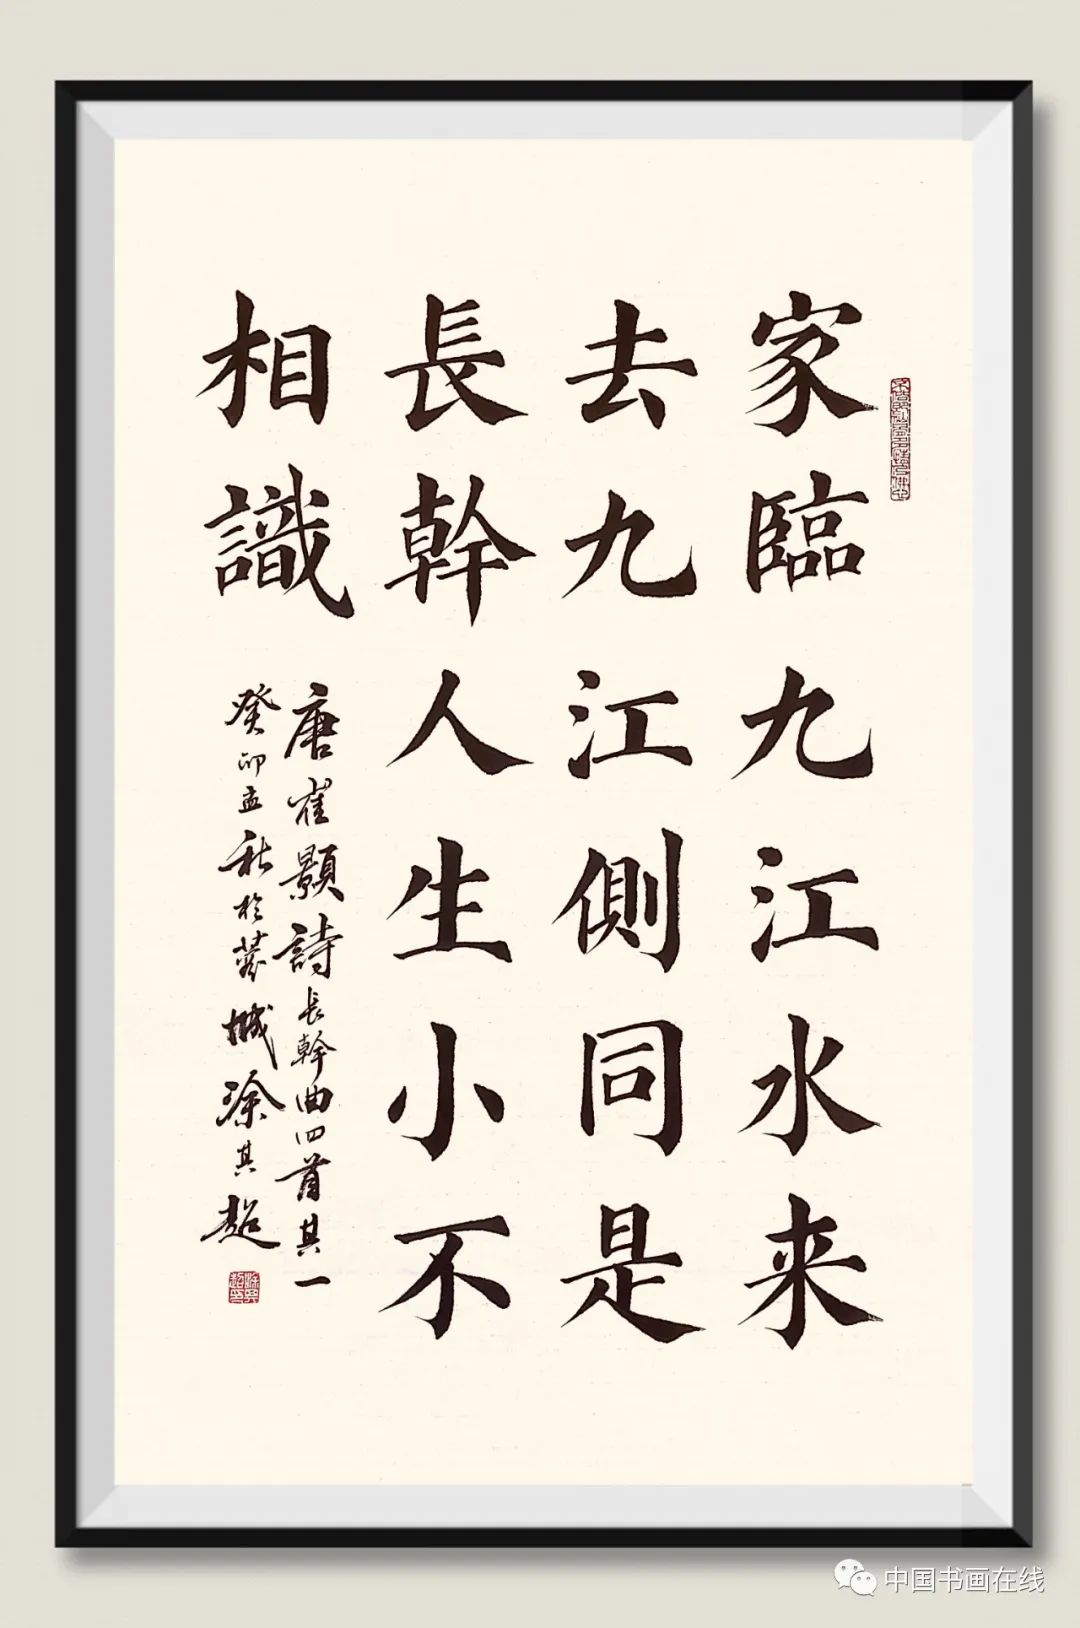 家臨九江水来
去九江側同是
長幹人生小不
相識
唐崔顥詩長幹曲四首其一
癸卯孟秋於蓉城涂其超
中国书画在线